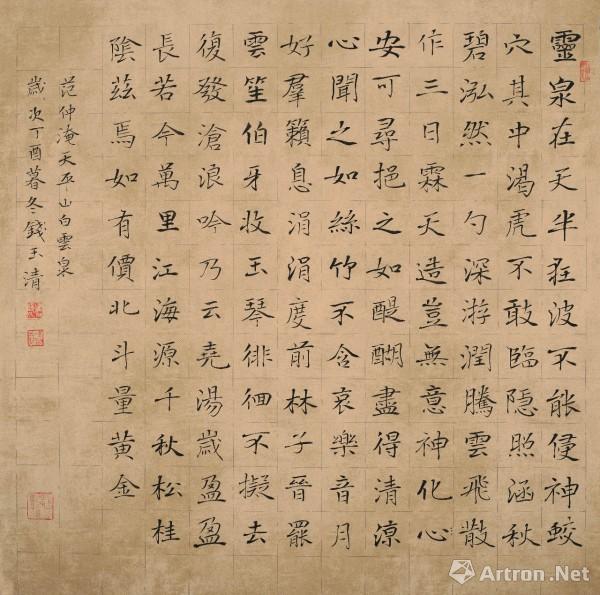 靈泉在天半狂波不能侵神蛟
穴其中渴虎不敢臨隱照涵秋
碧泓然一勺深游潤騰雲飛散
作三日霖天造豈無意神化心
安可尋挹之如醍醐盡得清涼
心聞之如絲竹不含哀樂音月
好羣籟息涓涓度前林子晉罷
雲笙伯牙收玉琴徘徊不擬去
復發滄浪吟乃云堯湯歲盈盈
長若今萬里江海源千秋松桂
陰茲焉如有價北斗量黃金
范仲淹天平山白雲泉
歲次丁酉暮冬錢玉清
Artron.Net